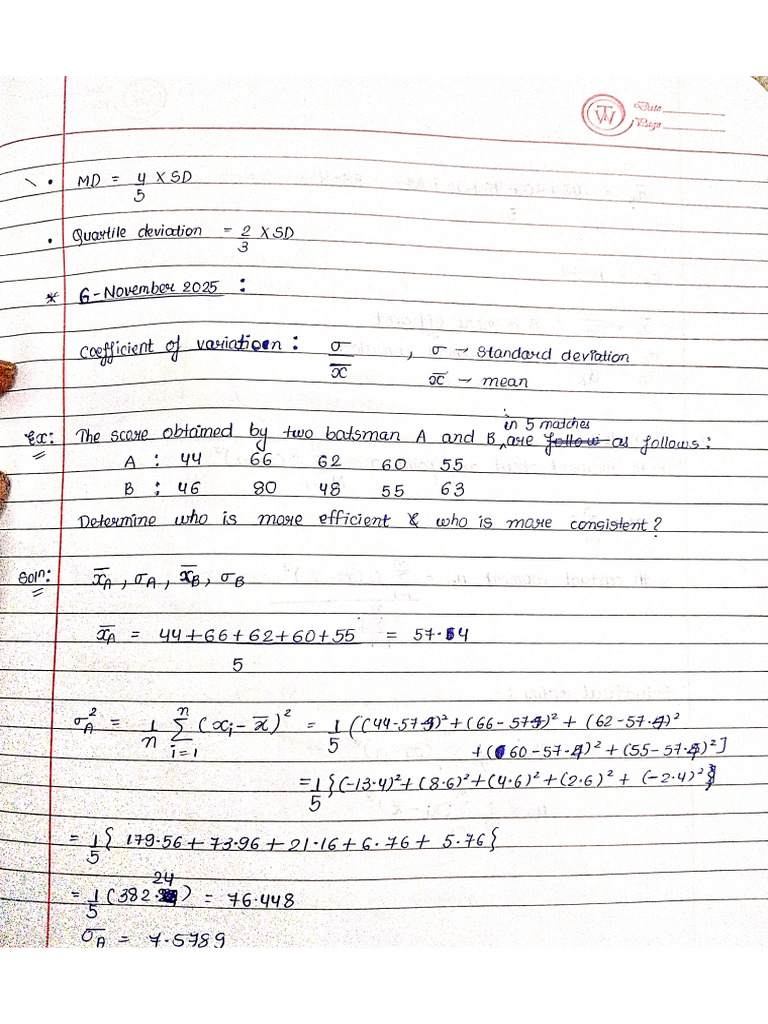 Date
Page
• MD = 4/5 × SD
• Quartile deviation = 2/3 × SD
* 6-November 2025 :
Coefficient of variation : σ/x̄ , σ → standard deviation
x̄ → mean
in 5 matches
Ex: The score obtained by two batsman A and B, are follow as follows :
A : 44 66 62 60 55
B : 46 80 48 55 63
Determine who is more efficient & who is more consistent?
Soln: x̄A , σA , x̄B , σB
x̄A = 44+66+62+60+55 / 5 = 57.4
σA² = 1/n Σ i=1 n (xi - x̄)² = 1/5 ((44-57.4)² + (66-57.4)² + (62-57.4)²
+ (60-57.4)² + (55-57.4)²]
= 1/5 {(-13.4)² + (8.6)² + (4.6)² + (2.6)² + (-2.4)²}
= 1/5 { 179.56 + 73.96 + 21.16 + 6.76 + 5.76 {
= 1/5 (382.24) = 76.448
σA = 7.5789